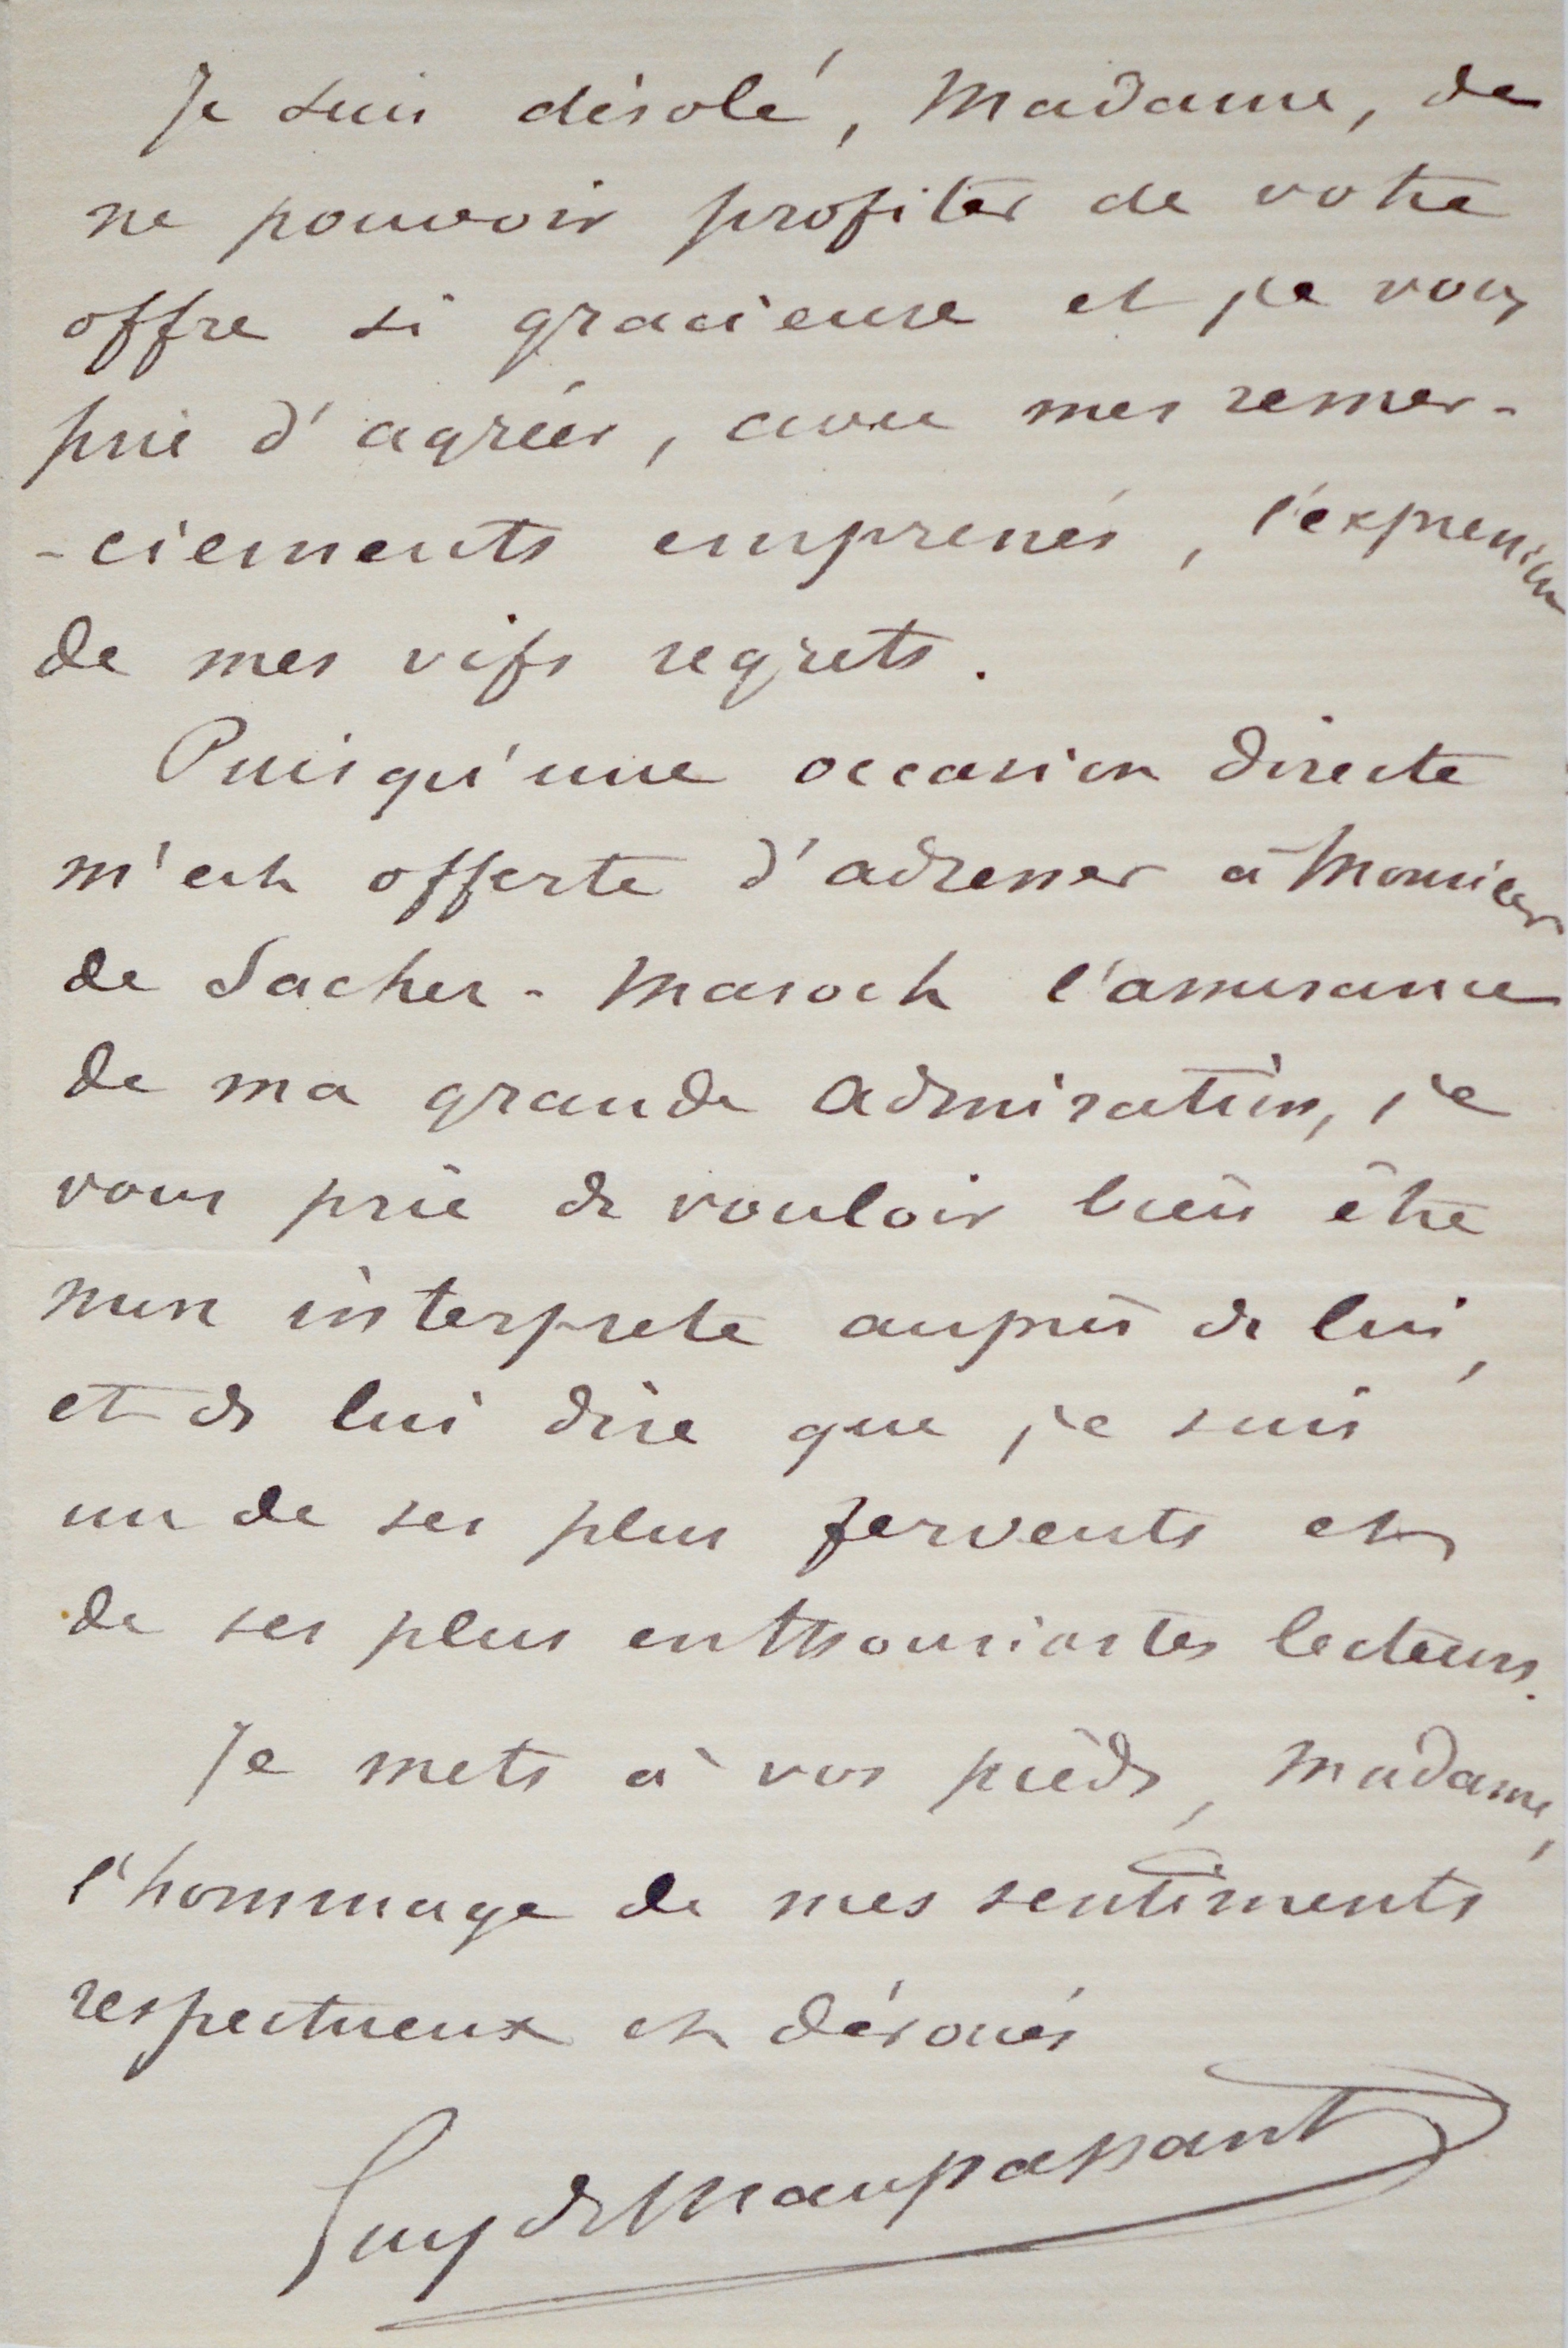 Je suis désolé, Madame, de
ne pouvoir profiter de votre
offre si gracieuse et je vous
prie d'agréer, avec mes remer-
-ciements empressés, l'expression
de mes vifs regrets.
Puisqu'une occasion directe
m'est offerte d'adresser à Monsieur
de Sacher-Masoch l'assurance
de ma grande admiration, je
vous prie de vouloir bien être
mon interprete auprès de lui,
et de lui dire que je suis
un de ses plus fervents et
de ses plus enthousiastes lecteurs.
Je mets à vos pieds, Madame,
l'hommage de mes sentiments
respectueux et dévoués
Guy de Maupassant